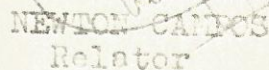 NEWTON CAMPOS
Relator